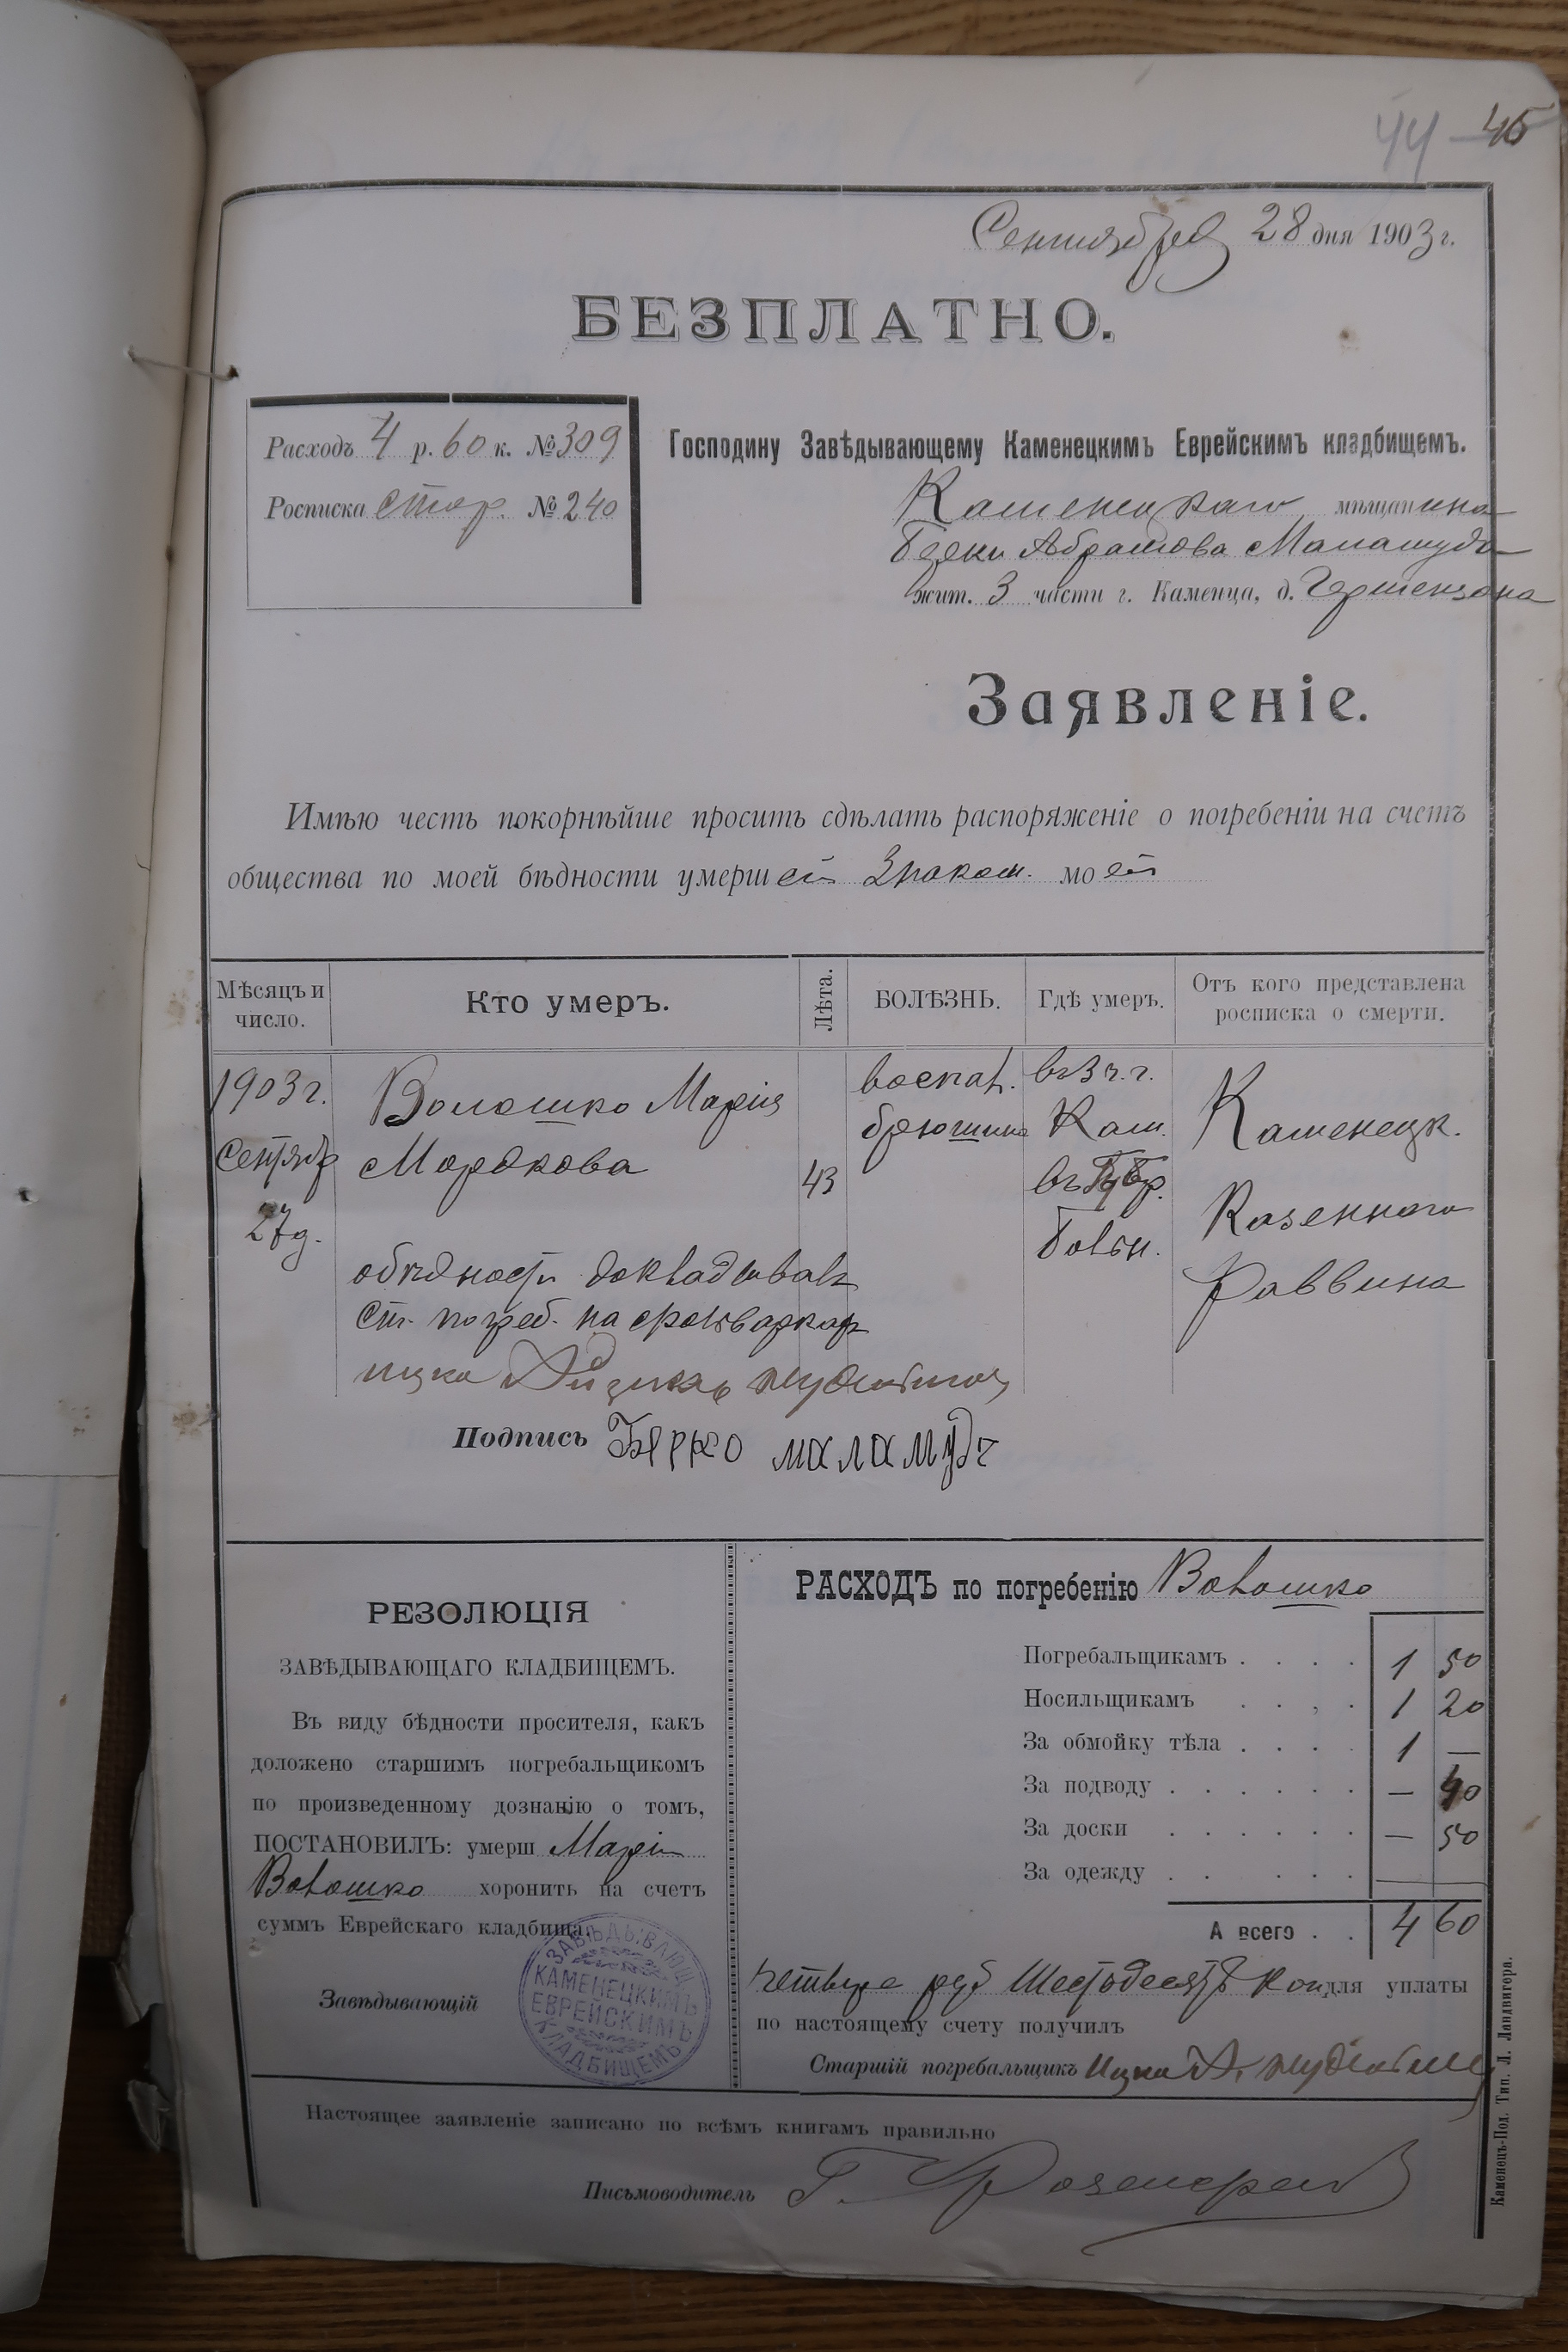 44 – 45
Сентября 28 дня 1903 г.
БЕЗПЛАТНО.
Расходъ 4 р. 60 к. № 309
Росписка стар. № 240
Господину Завѣдывающему Каменецкимъ Еврейскимъ кладбищемъ.
Каменецкаго мѣщанина
Абрамова Маламуда
жит. 3 части г. Каменца, д. Гершензона
Заявленіе.
Имѣю честь покорнѣйше просить сдѣлать распоряженіе о погребеніи на счетъ
общества по моей бѣдности умершей Знаком. моей
Мѣсяцъ и число.
Кто умеръ.
Лѣта.
БОЛѢЗНЬ.
Гдѣ умеръ.
Отъ кого представлена росписка о смерти.
1903 г.
Сентябр
27 д.
Волошко Марія
Мордкова
43
воспал.
брюшины
въ 3 ч. г.
Кам.
въ Губер.
больн.
Каменецк.
Казеннаго
Раввина
о бѣдности докладывалъ
ст. погреб.
ицко
Подпись Берко маламудъ
РЕЗОЛЮЦІЯ
ЗАВѢДЫВАЮЩАГО КЛАДБИЩЕМЪ.
Въ виду бѣдности просителя, какъ
доложено старшимъ погребальщикомъ
по произведенному дознанію о томъ,
ПОСТАНОВИЛЪ: умерш Марію
Волошко хоронить на счетъ
суммъ Еврейскаго кладбища.
Завѣдывающій
ЗАВѢДЫВАЮЩ.
КАМЕНЕЦКИМЪ
ЕВРЕЙСКИМЪ
КЛАДБИЩЕМЪ
РАСХОДЪ по погребенію Волошко
Погребальщикамъ . . . . 1 50
Носильщикамъ . . . . 1 20
За обмойку тѣла . . . . 1 —
За подводу . . . . . . — 40
За доски . . . . . . — 50
За одежду . . . . . —
А всего . . 4 60
Четыре руб Шестьдесятъ коп для уплаты
по настоящему счету получилъ
Старшій погребальщикъ Ицко А.
Настоящее заявленіе записано по всѣмъ книгамъ правильно
Письмоводитель Г.
Каменецъ-Под. Тип. Л. Ландвигера.